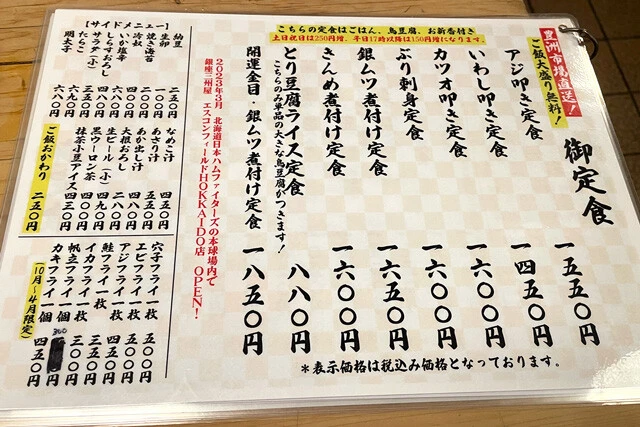 豊洲市場直送!
ご飯大盛り無料!
御定食
こちらの定食はごはん、鳥豆腐、お新香付き
土日祝日は250円増、平日17時以降は150円増になります。
アジ叩き定食 一五五〇円
いわし叩き定食 一四五〇円
カツオ叩き定食 一六〇〇円
ぶり刺身定食 一六〇〇円
銀ムツ煮付け定食 一六五〇円
きんめ煮付け定食 一六〇〇円
とり豆腐ライス定食 八八〇円
こちらのみ単品の大きな鳥豆腐がつきます!
開運金目・銀ムツ煮付け定食 一八五〇円
*表示価格は税込み価格となっております。
2023年3月 北海道日本ハムファイターズの本球場内で
銀座三州屋 エスコンフィールドHOKKAIDO店 OPEN!
【サイドメニュー】
納豆 二五〇円
生卵 一〇〇円
焼き海苔
冷奴
いか塩辛
しらすおろし
サラダ(小)
たらこ 六九〇円
明太子 六八〇円
なめこ汁 四五〇円
あさり汁 五五〇円
あか出し汁
大根おろし
生ビール(小) 四九〇円
黒ウーロン茶
抹茶小豆アイス 四三〇円
ご飯おかわり 二五〇円
穴子フライ一枚 五〇〇円
エビフライ一枚 五〇〇円
アジフライ一枚 五五〇円
鮭フライ一枚 四五〇円
イカフライ一枚 三五〇円
帆立フライ一個 三〇〇円
カキフライ一個
(10月～4月限定)